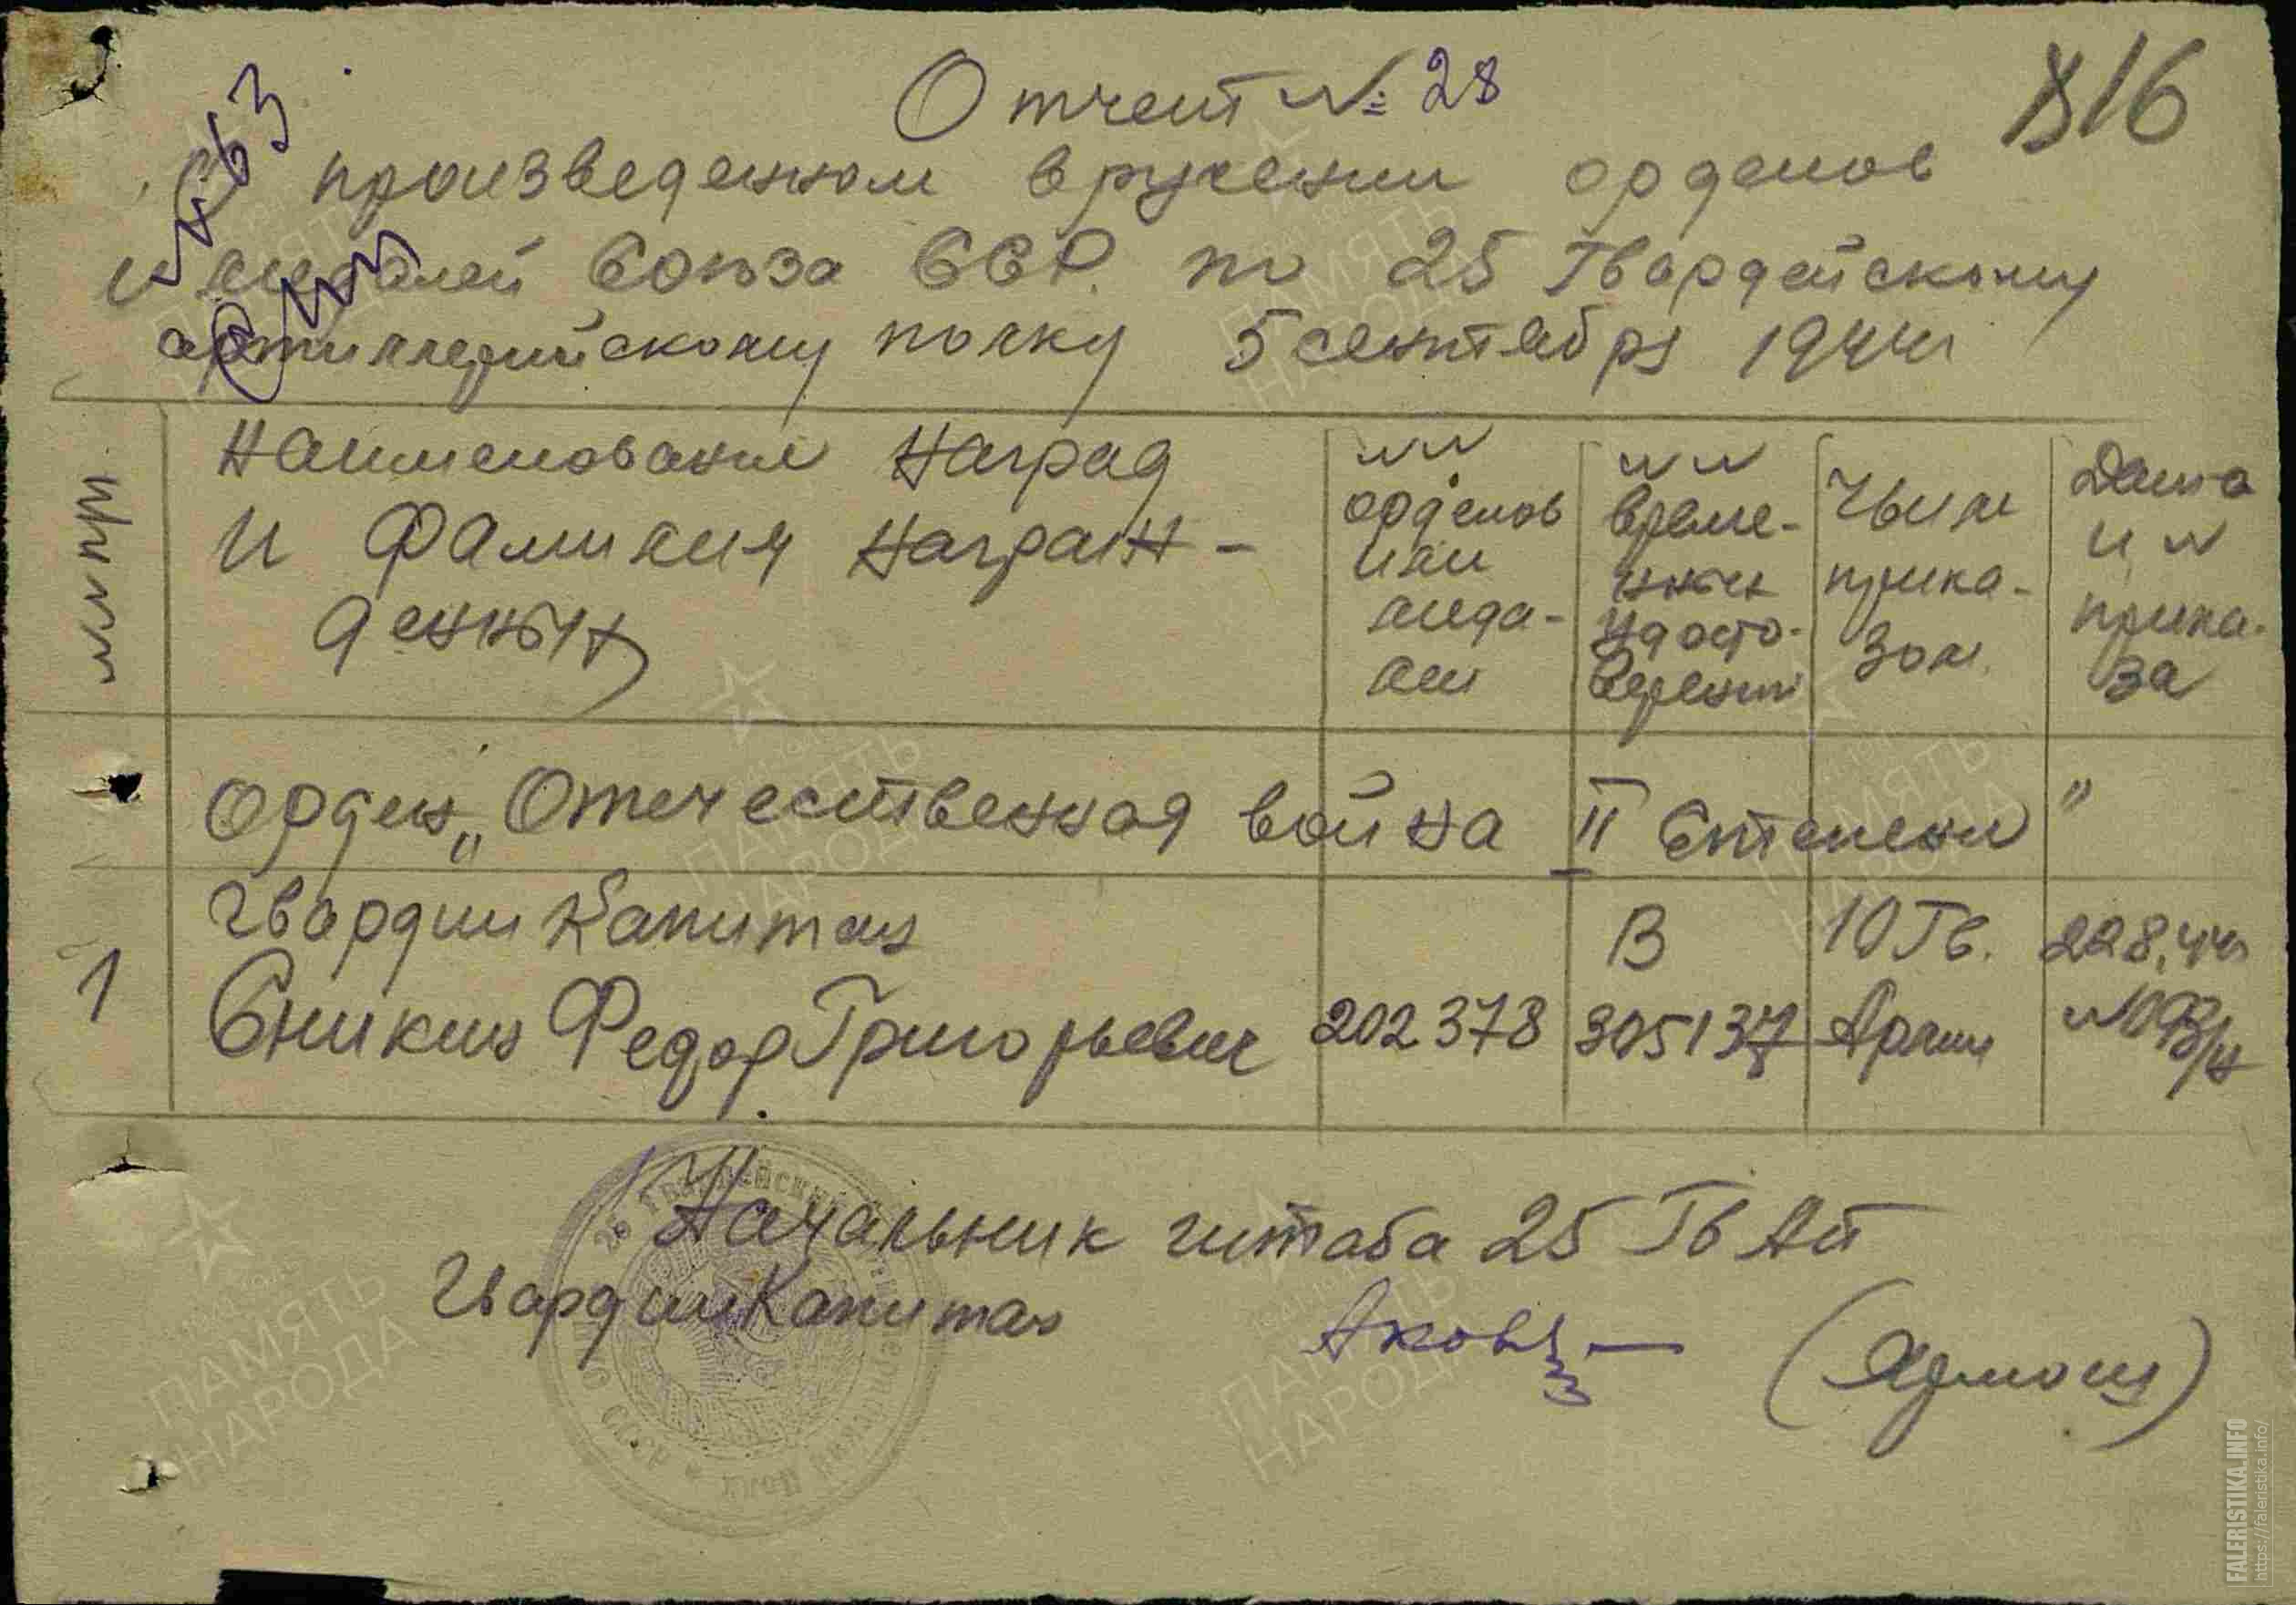 Отчет № 28
816
4663
произведенном вручении орденов
и медалей Союза ССР. по 25 Гвардейскому
артиллерийскому полку 5 сентября 1944г
№№ пр
Наименование наград
и Фамилия награж-
денных
№№
орденов
или
меда-
ли
№№
Време-
нных
удосто-
верений
Чьим
прика-
зом
Дата
и №
прика-
за
Орден „Отечественная война II Степени"
1
Гвардии Капитан
Еникин Федор Григорьевич
202378
В
305137
10 Гв.
Армии
22 8.44г
№ 093/н
Начальник штаба 25 Гв Ап
Гвардии Капитан
(Ярмош)
ПАМЯТЬ
НАРОДА
FALERISTIKA.INFO
https://faleristika.info/